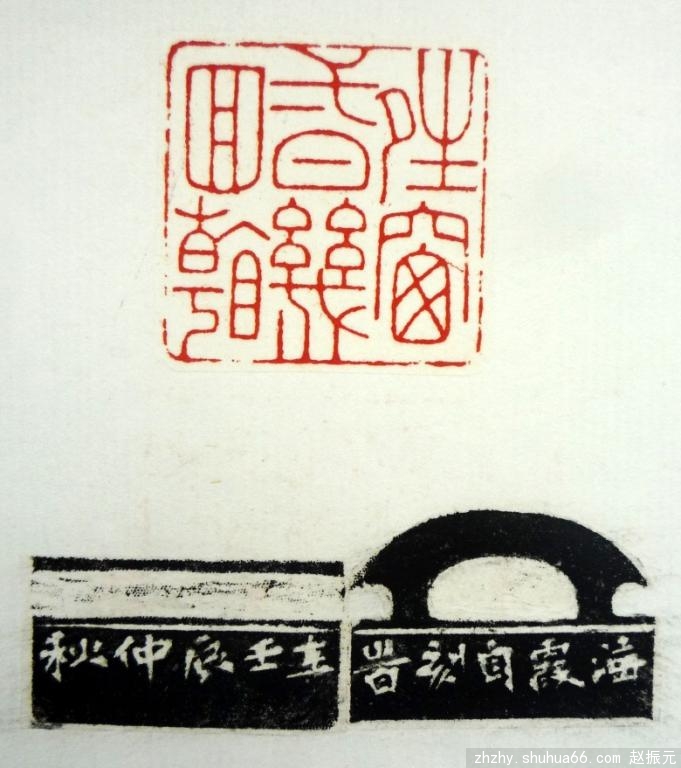 窗
幾
回
海霞自刻旹
在壬辰仲秋
zhzhy.shuhua66.com 赵振元